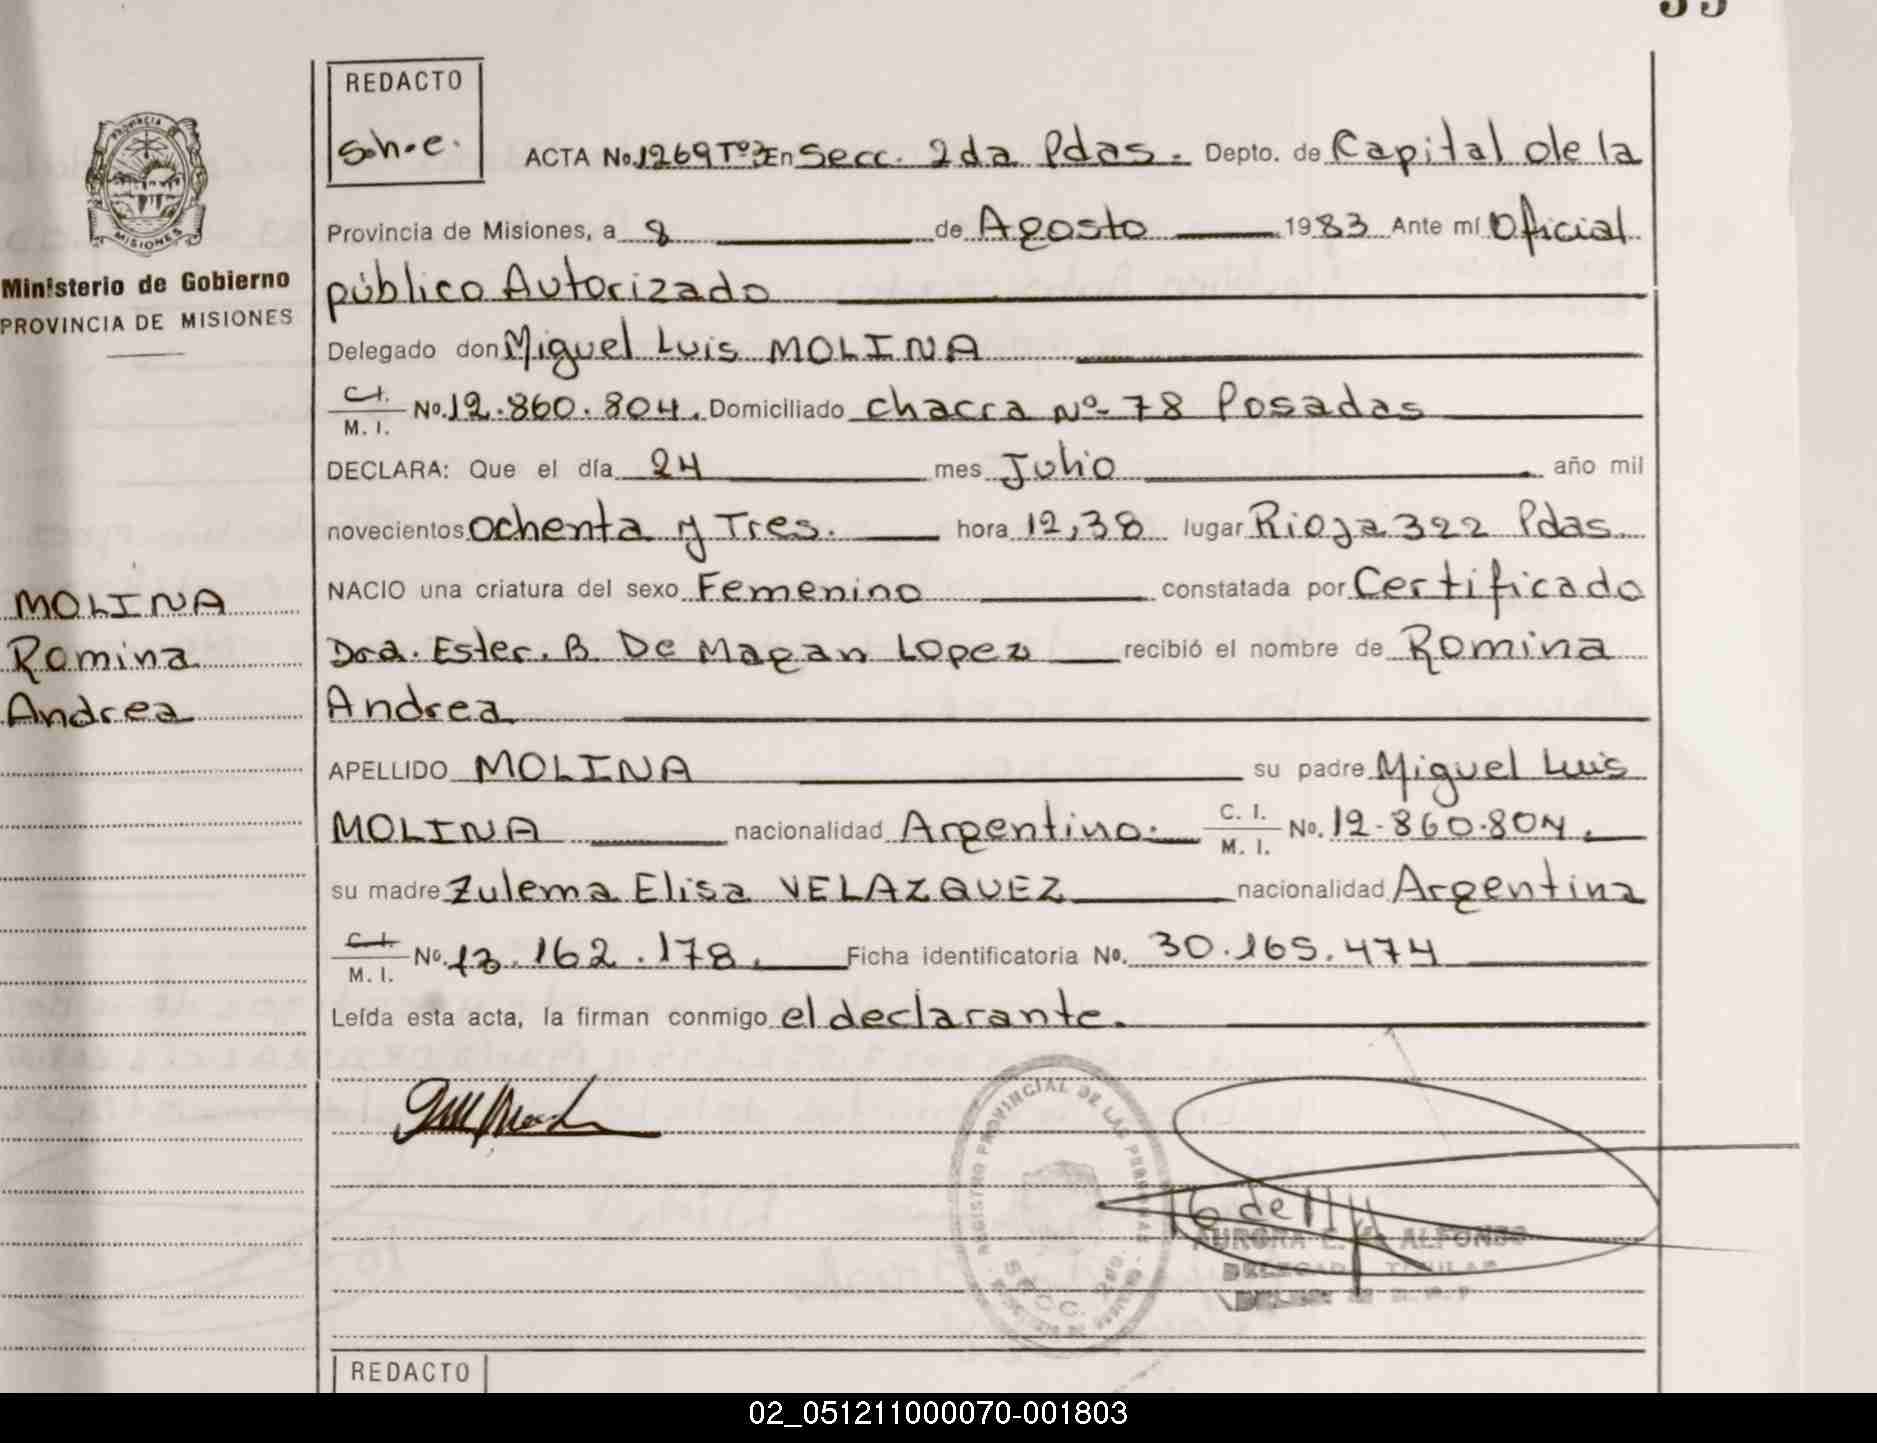 REDACTO
S.h.e.
ACTA No. 1269 Tº 3 En Secc. 2da Pdas. Depto. de Capital de la
Provincia de Misiones, a 8 de Agosto 1983 Ante mí Oficial
público Autorizado
Delegado don Miguel Luis MOLINA
C.I. M. I. No. 12.860.804. Domiciliado chacra Nº 78 Posadas
DECLARA: Que el día 24 mes Julio año mil
novecientos ochenta y Tres. hora 12,38 lugar Rioja 322 Pdas.
NACIO una criatura del sexo Femenino constatada por Certificado
Dra. Ester. B. De Magan Lopez recibió el nombre de Romina
Andrea
APELLIDO MOLINA su padre Miguel Luis
MOLINA nacionalidad Argentino. C. I. M. I. No. 12.860.804.
su madre Zulema Elisa VELAZQUEZ nacionalidad Argentina
C.I. M. I. No. 13.162.178. Ficha identificatoria No. 30.165.474
Leída esta acta, la firman conmigo el declarante.
REGISTRO PROVINCIAL DE LAS PERSONAS
SECC. 2da.
AURORA E. ALFONSO
REDACTO
PROVINCIA DE
MISIONES
Ministerio de Gobierno
PROVINCIA DE MISIONES
MOLINA
Romina
Andrea
02_051211000070-001803